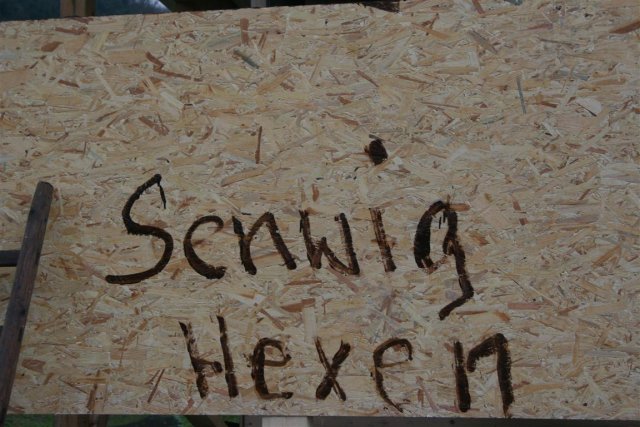 Senwig
Hexen